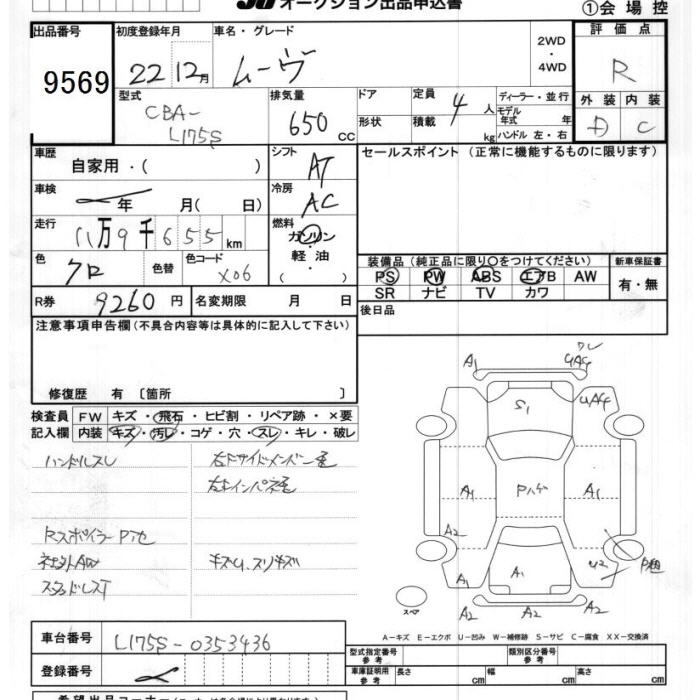 JU オークション出品申込書
①会場控
出品番号 9569
初度登録年月 22 12月
車名・グレード ムーヴ
2WD・4WD
評価点 R
外装 D 内装 C
型式 CBA-L175S
排気量 650 CC
ドア 形状
定員 4人 積載 kg
ディーラー・並行
モデル年式 年
ハンドル 左・右
車歴 自家用・( )
シフト AT
セールスポイント (正常に機能するものに限ります)
車検 年 月( 日)
冷房 AC
走行 11万9千655km
燃料 ガソリン・軽油 ( )
色 クロ 色替 色コード X06
装備品(純正品に限り〇をつけてください)
新車保証書 有・無
PS PW ABS エアB AW
SR ナビ TV カワ
R券 9260円 名変期限 月 日
後日品
注意事項申告欄(不具合内容等は具体的に記入して下さい)
修復歴 有〔箇所 〕
検査員記入欄
FW キズ・飛石・ヒビ割・リペア跡・×要
内装 キズ・汚レ・コゲ・穴・スレ・キレ・破レ
ハンドルスレ
Rスポイラー
スタッドレスT
キズU、スリキズ
A1 UA4
S1 UA4
A1 Pハゲ A1
A2
A1 A1 U2
A2 A2
スペア
A-キズ E-エクボ U-凹み W-補修跡 S-サビ C-腐食 XX-交換済
車台番号 L175S-0353436
登録番号
型式指定番号 参考 類別区分番号 参考
車庫証明用 参考 長さ cm 幅 cm 高さ cm